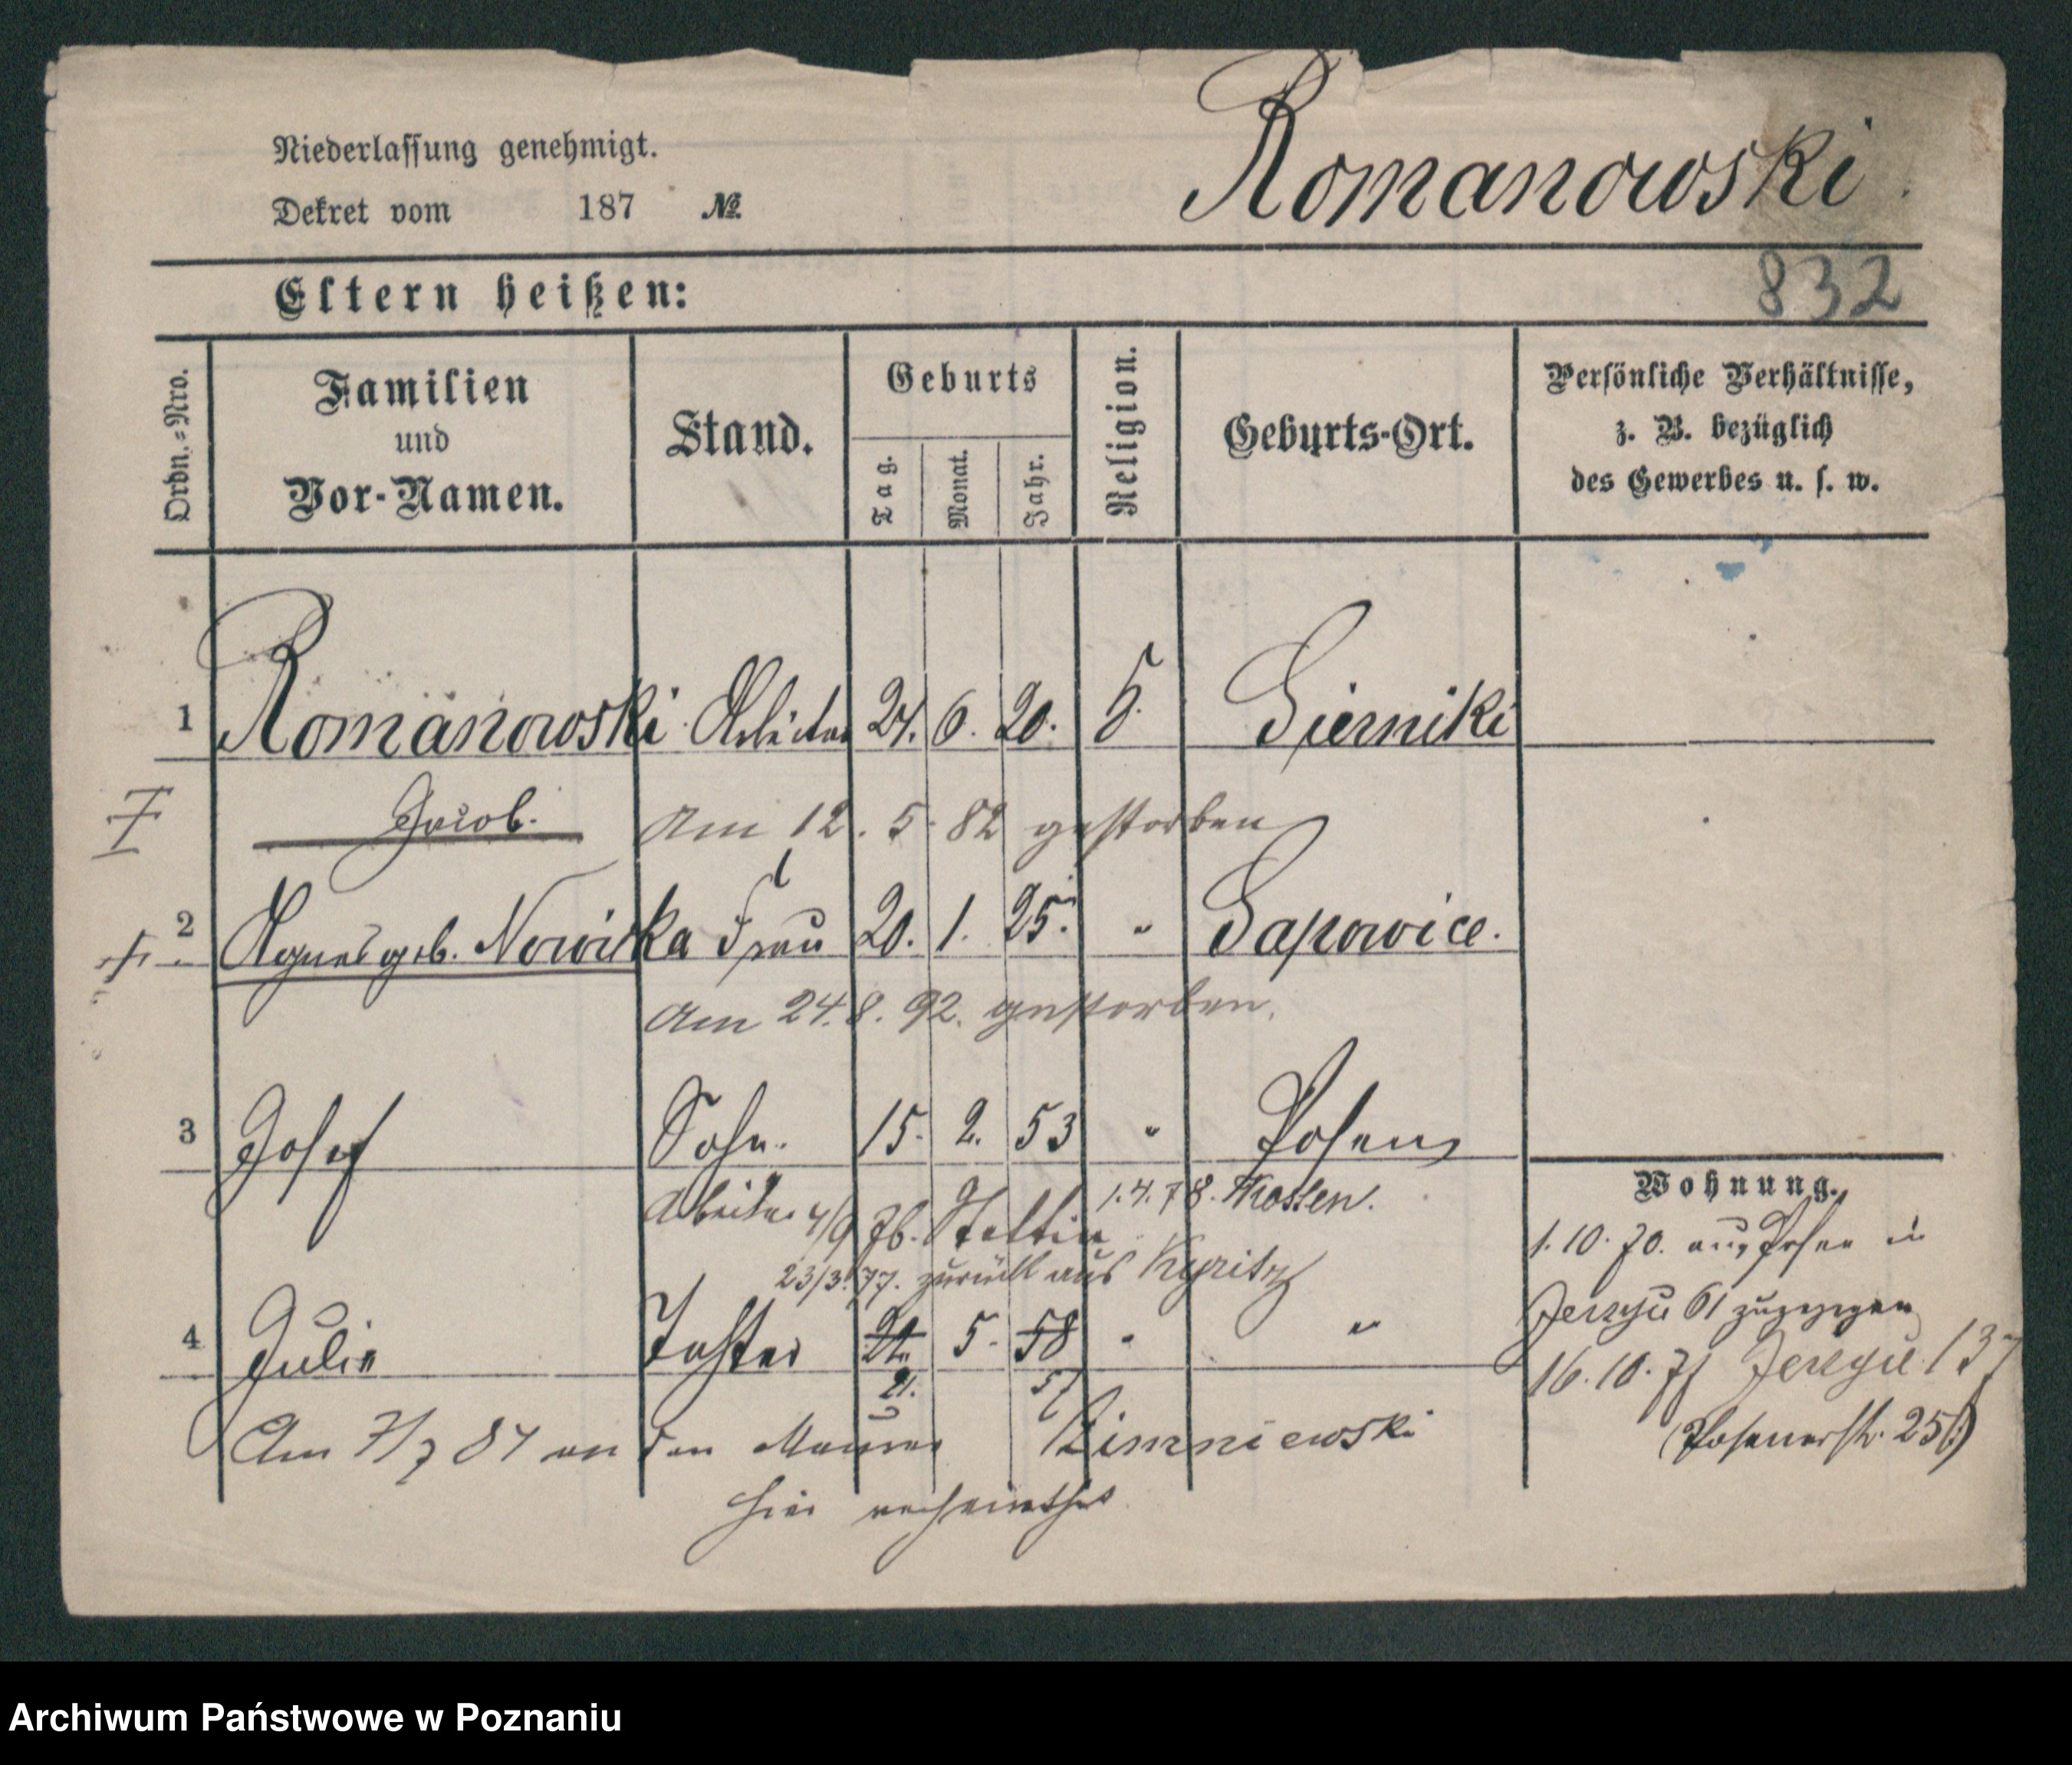 Niederlassung genehmigt.
Dekret vom 187 №
Romanowski.
832
Eltern heißen:
Ordn.=Nro.
Familien und Vor-Namen.
Stand.
Geburts
Tag.
Monat.
Jahr.
Religion.
Geburts-Ort.
Persönliche Verhältnisse,
z. B. bezüglich
des Gewerbes u. s. w.
1 Romanowski Arbeiter 24. 6. 20. Sierniki
Jacob. Am 12. 5. 82 gestorben
2 Agnes geb. Nowicka Frau 20. 1. 25. " Sapowice.
Am 24. 8. 92. gestorben.
3 Josef Sohn. 15. 2. 53 " Posen
Arbeiter 4/9 76. Stettin 1.4.78. Kosten.
23/3. 77. zurück aus Kyritz
4 Julie Tochter 24. 5. 58 " "
21. 57
Am 7/7 84 an den Maurer Zimniewski
hier verheirathet
Wohnung.
1. 10. 70. aus Posen in
Jerzyce 61 zugezogen
16. 10. 77 Jerzyce 137
(Posenerstr. 25b)
Archiwum Państwowe w Poznaniu